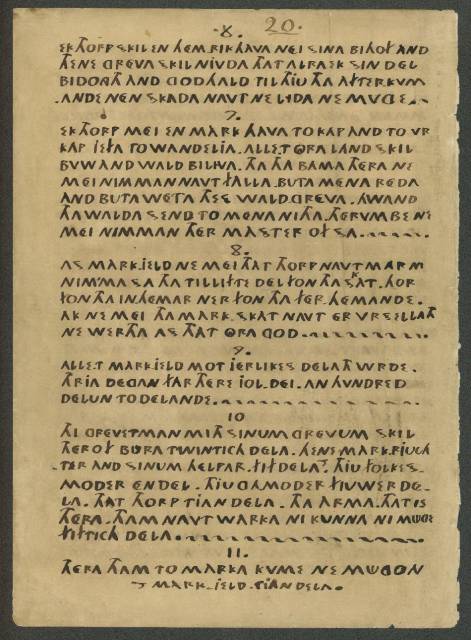 · 6. 20.
EK THORP SKIL EN HEMRIK HAVA NEI SINA BIHOF AND
THENE GREVA SKIL NIVDA THAT ALRA EK SIN DEL
BIDONGTH AND GOD HALD TIL THIU THA AFTERKVM
.ANDE NEN SKADA NAVT NE LYDA NE MUGE.
7.
EK THORP MEI EN MARK HAVA TO KAP AND TO VR
KAP IEFTA TO WANDELIA. ALLET ORA LAND SKIL
BUW AND WALD BILIVA. THA THA BAMA THERA NE
MEI NIMMAN NAVT FALLA. BUTA MENA REDA
AND BUTA WETA THES WALD GREVA. HWAND
THA WALDA SEND TO MENA NITHA. THERVMBE NE
MEI NIMMAN THER MASTER OF SA.
8.
AS MARK.IELD NE MEI THAT THORP NAVT MAR NI
NIMMA SA THA TILLIFTE DEL FON THA SKAT. HOR
FON THA INHEMAR NER FON THA FER.HEMANDE.
AK NE MEI THA MARK.SKAT NAVT ER VRSELLATH
NE WERTHA AS THAT ORA GOD.
9.
ALLET MARKIELD MOT IERLIKES DELATH WRDE.
THRIA DEGAN FAR THERE IOL.DEI. AN HVNDRED
DELUN TO DELANDE.
10
THI GREVETMAN MITH SINUM GREVUM SKIL
THEROF BURA TWINTICH DELA. THENE MARK.RIUCH
.TER AND SINUM HELPAR. FIF DELA. THIU FOLKES.
MODER EN DEL. THIU GAMODER FIUWER DE.
LA. THAT THORP TIAN DELA. THA ARMA. THAT IS
THERA. THAM NAVT WARKA NI KUNNA NI MUGE
FIFTICH DELA.
11.
THERA THAM TO MARKA KVME NE MUGON
MARK.IELD TIAN DELA.